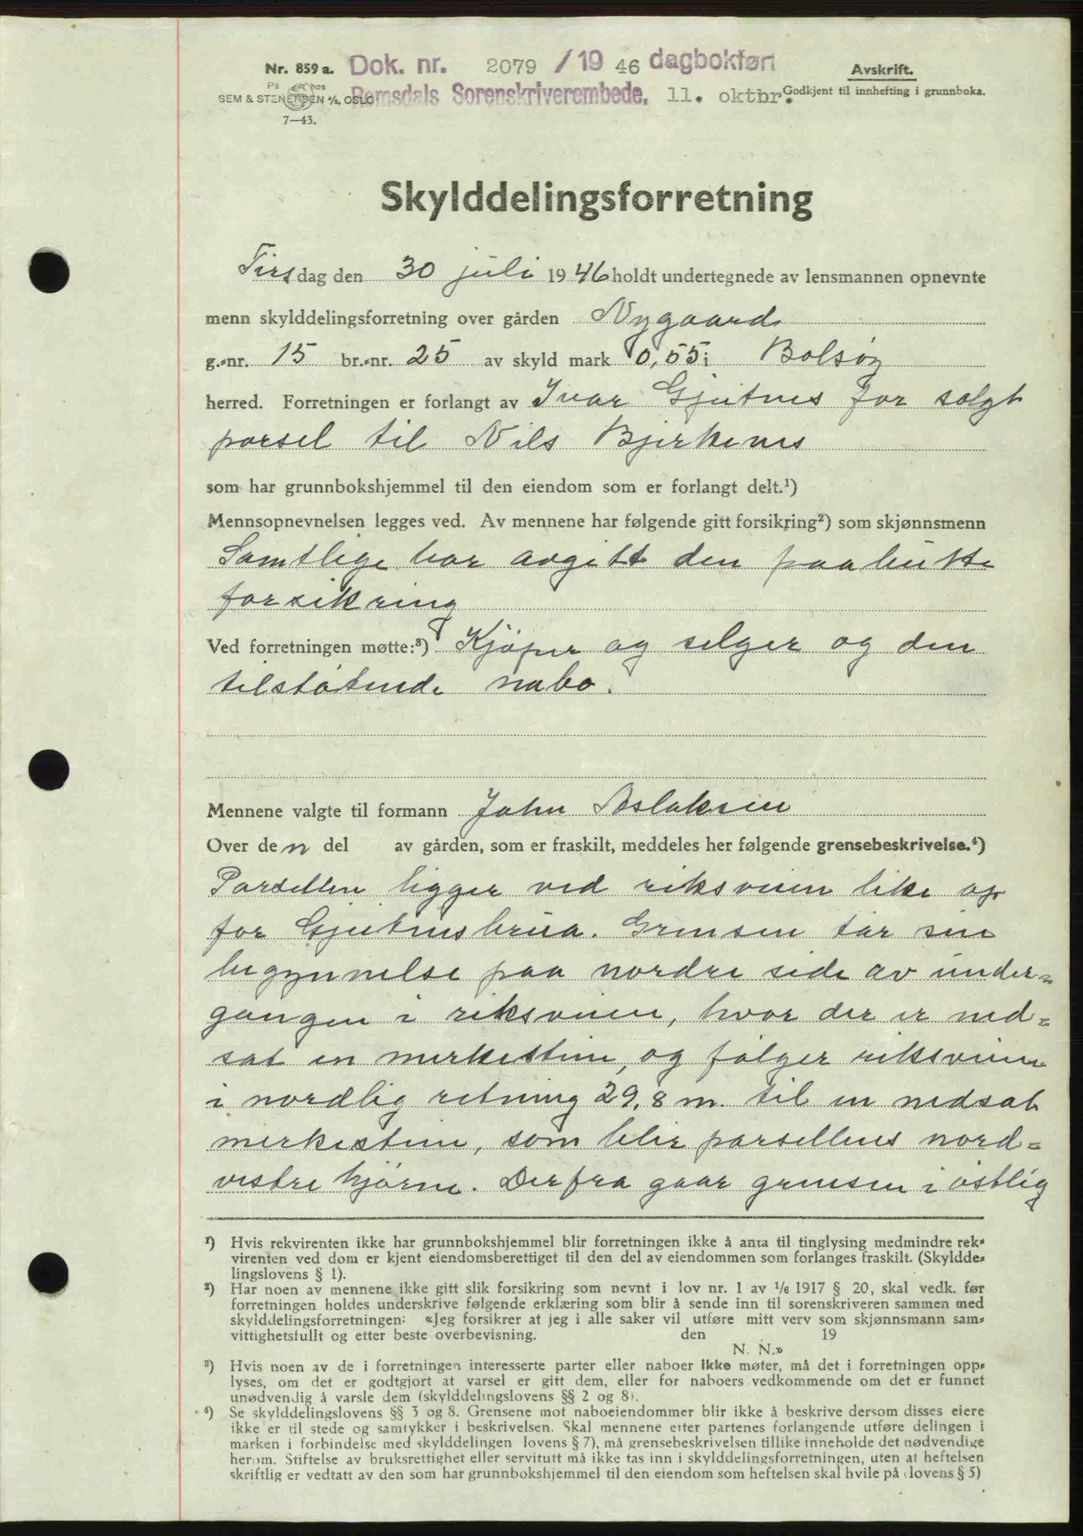 Nr. 859 a. Dok. nr. 2079 / 19 46 dagbokført Avskrift.
På hos
SEM & STENERSEN A/S, OSLO Romsdals Sorenskriverembede. 11. oktbr. Godkjent til innhefting i grunnboka.
7—43.
Skylddelingsforretning
Tirsdag den 30 juli 1946 holdt undertegnede av lensmannen opnevnte
menn skylddelingsforretning over gården Nygaard
g.-nr. 15 br.-nr. 25 av skyld mark 0,55 i Bolsøy
herred. Forretningen er forlangt av Ivar Gjeitnes for solgt
parsel til Nils Bjerkenes
som har grunnbokshjemmel til den eiendom som er forlangt delt.¹)
Mennsopnevnelsen legges ved. Av mennene har følgende gitt forsikring²) som skjønnsmenn
Samtlige har avgitt den paabudte
forsikring
Ved forretningen møtte:³) Kjøper og selger og den
tilstøtende nabo.
Mennene valgte til formann John Aslaksen
Over den del av gården, som er fraskilt, meddeles her følgende grensebeskrivelse.⁴)
Parsellen ligger ved riksveien like op
for Gjeitnesbrua. Grensen tar sin
begynnelse paa nordre side av under-
gangen i riksveien, hvor der er ned-
sat en merkestein, og følger riksveien
i nordlig retning 29,8 m. til en nedsat
merkestein, som blir parsellens nord-
vestre hjørne. Derfra gaar grensen i østlig
¹) Hvis rekvirenten ikke har grunnbokshjemmel blir forretningen ikke å anta til tinglysing medmindre rek-
virenten ved dom er kjent eiendomsberettiget til den del av eiendommen som forlanges fraskilt. (Skyldde-
lingslovens § 1).
²) Har noen av mennene ikke gitt slik forsikring som nevnt i lov nr. 1 av 1/6 1917 § 20, skal vedk. før
forretningen holdes underskrive følgende erklæring som blir å sende inn til sorenskriveren sammen med
skylddelingsforretningen: «Jeg forsikrer at jeg i alle saker vil utføre mitt verv som skjønnsmann sam-
vittighetsfullt og etter beste overbevisning. den 19
N. N.»
³) Hvis noen av de i forretningen interesserte parter eller naboer ikke møter, må det i forretningen opp-
lyses, om det er godtgjort at varsel er gitt dem, eller for naboers vedkommende om det er funnet
unødvendig å varsle dem (skylddelingslovens §§ 2 og 8).
⁴) Se skylddelingslovens §§ 3 og 8. Grensene mot naboeiendommer blir ikke å beskrive dersom disses eiere
ikke er til stede og samtykker i beskrivelsen. Skal mennene etter partenes forlangende utføre delingen i
marken i forbindelse med skylddelingen lovens § 7), må grensebeskrivelsen tillike inneholde det nødvendige
herom. Stiftelse av bruksrettighet eller servitutt må ikke tas inn i skylddelingsforretningen, uten at heftelsen
skriftlig er vedtatt av den som har grunnbokshjemmel til den eiendom som heftelsen skal hvile på (lovens § 5)